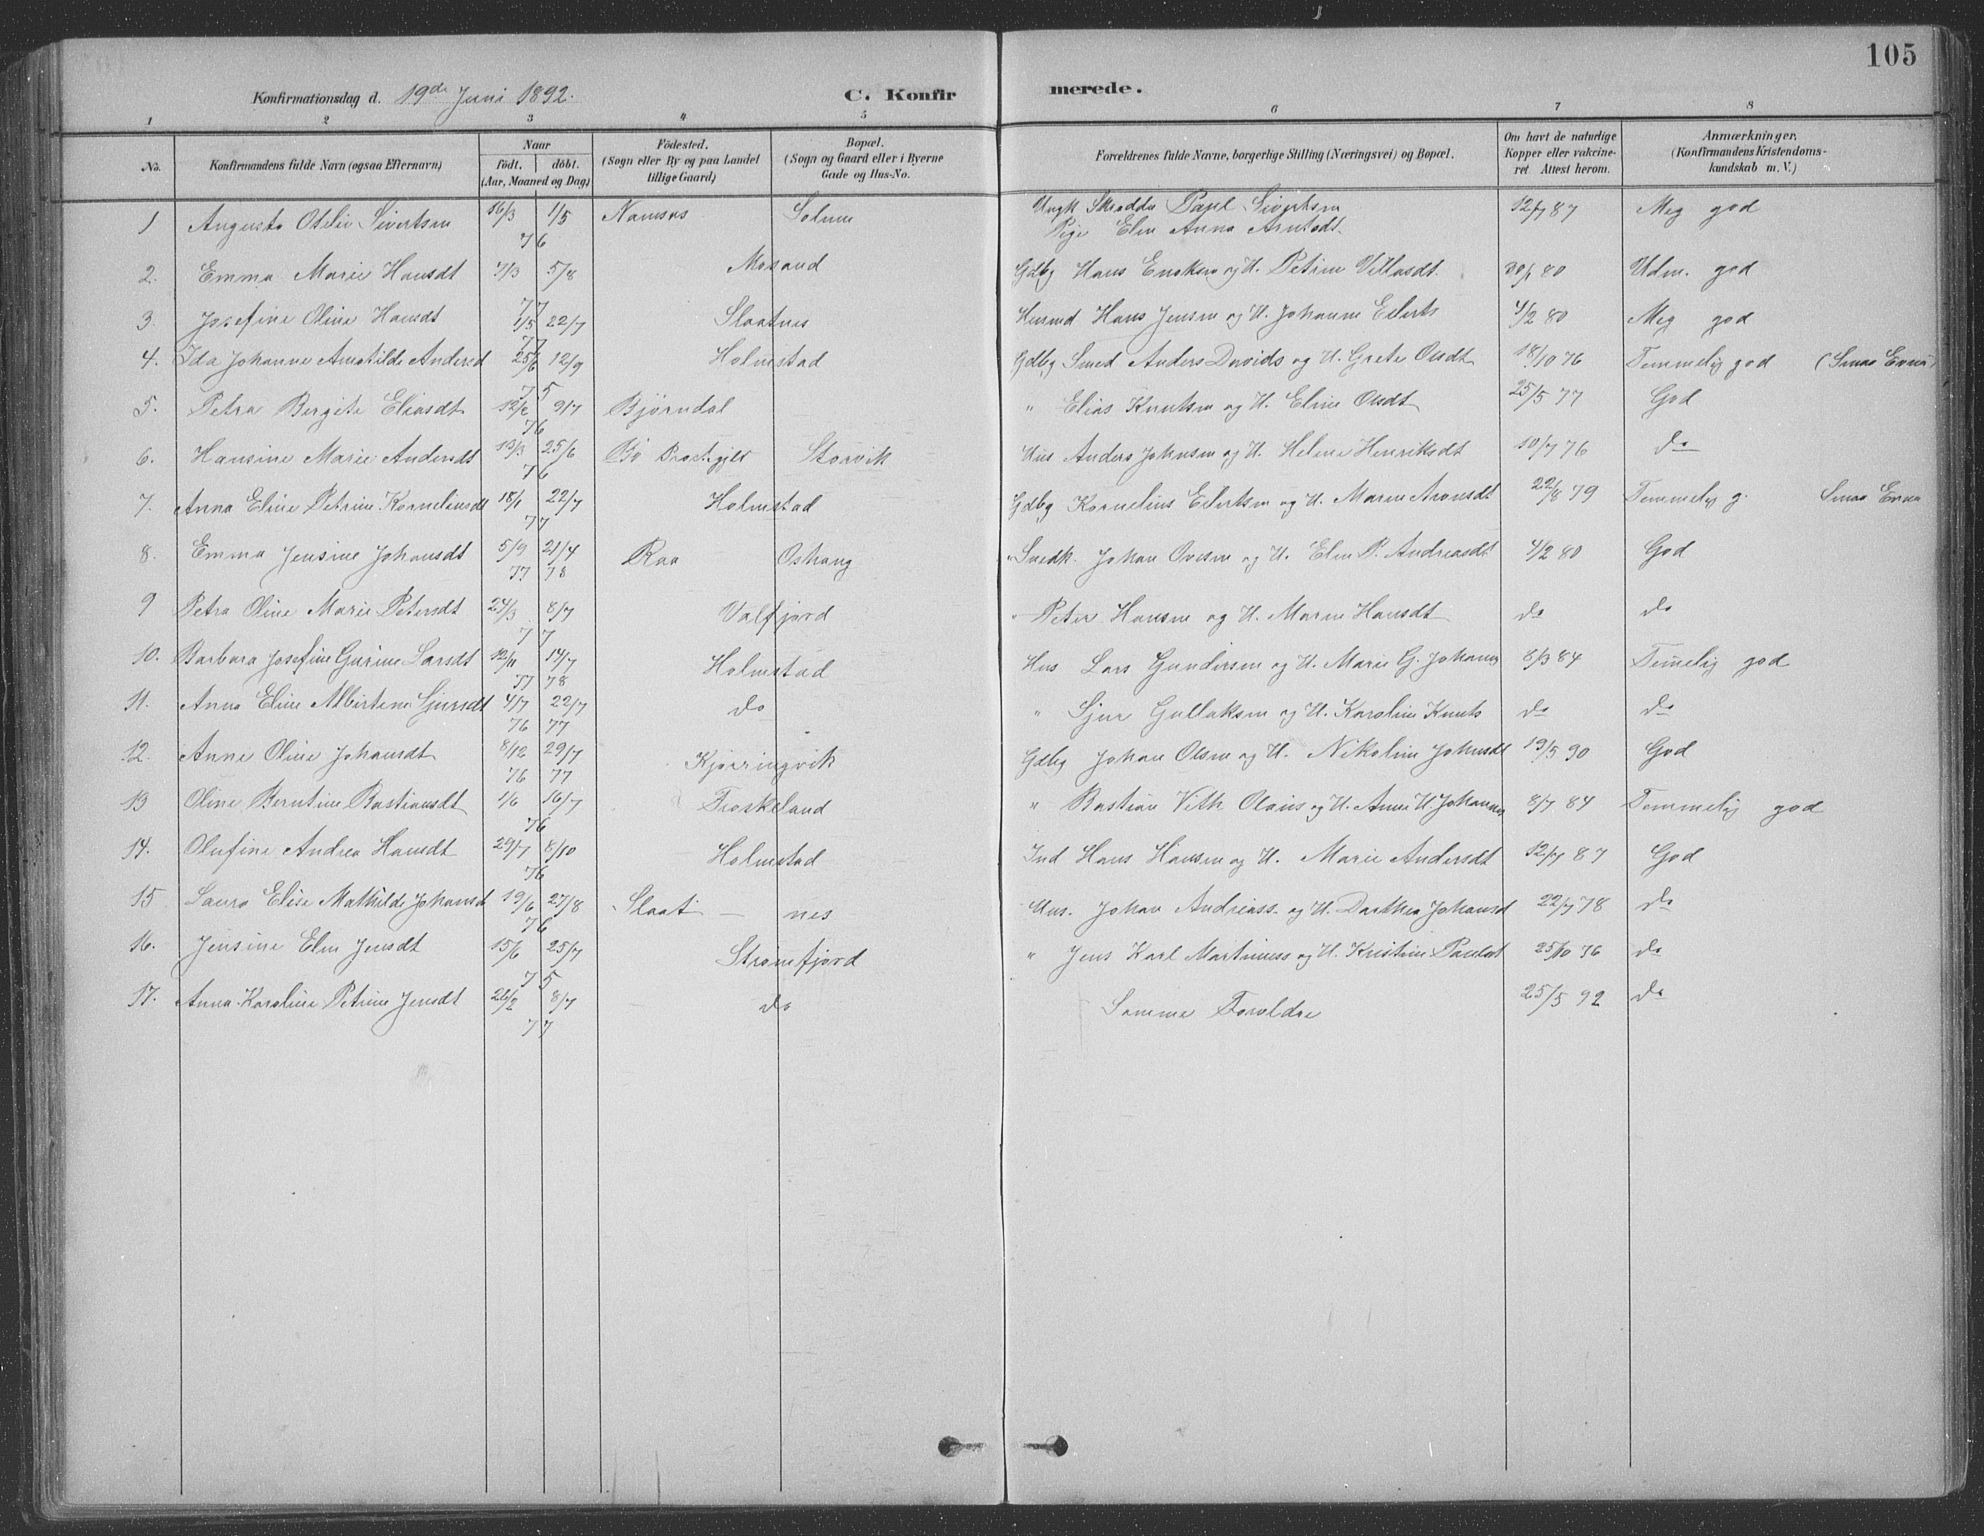 105
Konfirmationsdag d. 19de Juni 1892.
C. Konfirmerede.
1 2 3 4 5 6 7 8
No. Konfirmandens fulde Navn (ogsaa Efternavn) Naar födt. döbt. (Aar, Maaned og Dag) Födested. (Sogn eller By og paa Landet tillige Gaard) Bopæl. (Sogn og Gaard eller i Byerne Gade og Hus-No. Forældrenes fulde Navne, borgerlige Stilling (Næringsvei) og Bopæl. Om havt de naturlige Kopper eller vakcineret Attest herom. Anmærkninger. (Konfirmandens Kristendomskundskab m. V.)
1 Augusta Sivertsen 16/3 1/5 76 Namsos Solum Ungk Skrædder Sivertsen 12/7 87 Meg god
Pige Elen Anna Arntsdt.
2. Emma Marie Hansdt 7/3 5/8 77 Mosand Gdbg Hans Enoksen og H. Petrine Villasdt 80 Udm. god
3. Josefine Oline Hansdt 1/5 22/7 77 Slaatnes Husmd Hans Jensen og H. Johanne Eilerts 4/2 80 Meg god
4. Ida Johanne Amatilde Andersd 25/6 12/9 75 Holmstad Gdbg Smed Anders Davids og H. Grete Oudt 18/10 76 Temmelig god (Smaa Evner)
5. Petra Bergite Eliasdt 12/2 9/7 76 Bjørndal " Elias Knutsen og H. Eline Oudt 25/5 77 God
6. Hansine Marie Andersdt 19/3 25/6 76 Bø Prestegjeld Storvik Hus Anders Johnsen og H. Helene Henriksdt 10/7 76 do
7. Anna Eline Petrine Korneliusdt 18/1 22/7 77 Holmstad Gdbg Kornelius Eilertsen og H. Maren Aronsdt 22/8 79 Temmelig g. Smaa Evner
8. Emma Jensine Johansdt 5/9 77 21/4 78 Raa Oshaug " Snedk. Johan Ovesen og H. Elen P. Andreasdt 4/2 80 God
9 Petra Oline Marie Petersdt 24/3 8/7 77 Valfjord " Peter Hansen og H. Maren Hansdt do do
10. Barbara Josefine Gurine Larsdt 12/11 77 14/7 78 Holmstad Hus Lars Gundersen og H. Marie G. Johans 8/3 84 Temelig god
11. Anna Eline Albertine Sjursdt 4/7 76 22/7 77 do " Sjur Gullaksen og H. Karoline Knuts do do
12. Anne Oline Johansdt 8/12 76 29/7 77 Kjørringvik Gdbg Johan Olsen og H. Nikoline Johnsdt 19/5 90 God
13 Oline Berntine Bastiansdt 1/6 16/7 76 Froskeland " Bastian Vith Olaus og H. Anne H. Johannes 8/7 84 Temmelig god
14. Olufine Andrea Hansdt 29/7 8/10 76 Holmstad Ind Hans Hansen og H. Marie Andersdt 12/7 87 God
15 Laura Elise Mathilde Johansd 19/6 27/8 76 Slaat - nes Hus. Johan Andreass. og H. Dorthea Johansd 22/7 78 do
16. Jensine Elen Jensdt 15/6 25/7 75 Strømfjord " Jens Karl Martinuss og H. Kristine Paulsd 25/10 76 do
17. Anna Karoline Petrine Jensdt 26/2 8/7 77 do Samme Foroldre 25/5 92 do